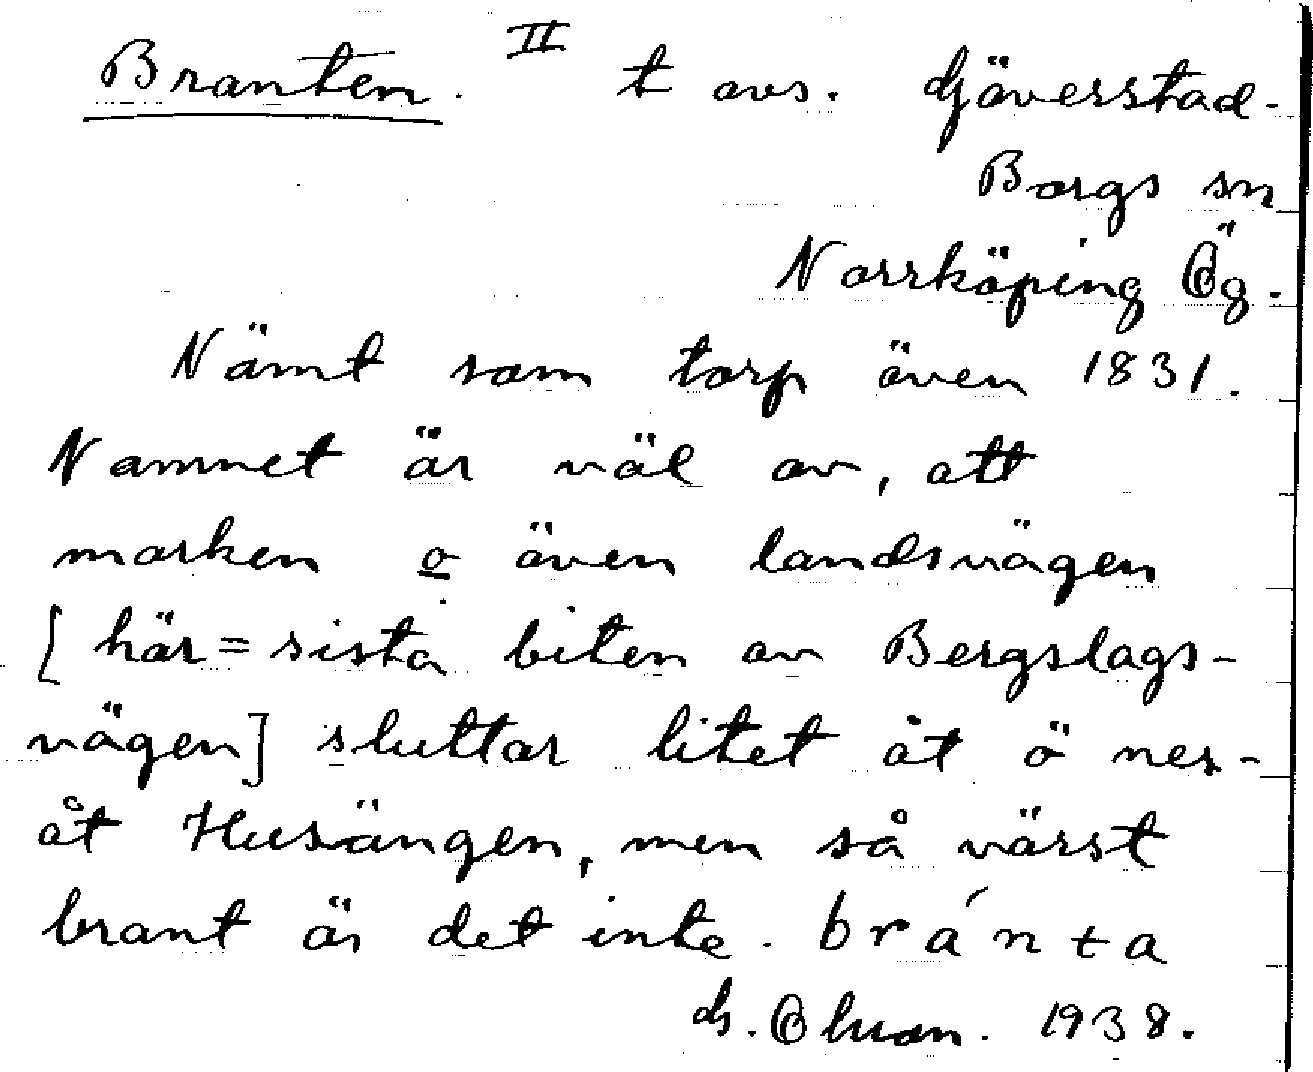 Branten. II t avs. Djäverstad-
Borgs sn
Norrköping Ög.
Nämt som torp även 1831.
Namnet är väl av, att
marken o även landsvägen
[här = sista biten av Bergslags-
vägen] sluttar litet åt ö ner-
åt Husängen, men så värst
brant är det inte. bránta
1938.